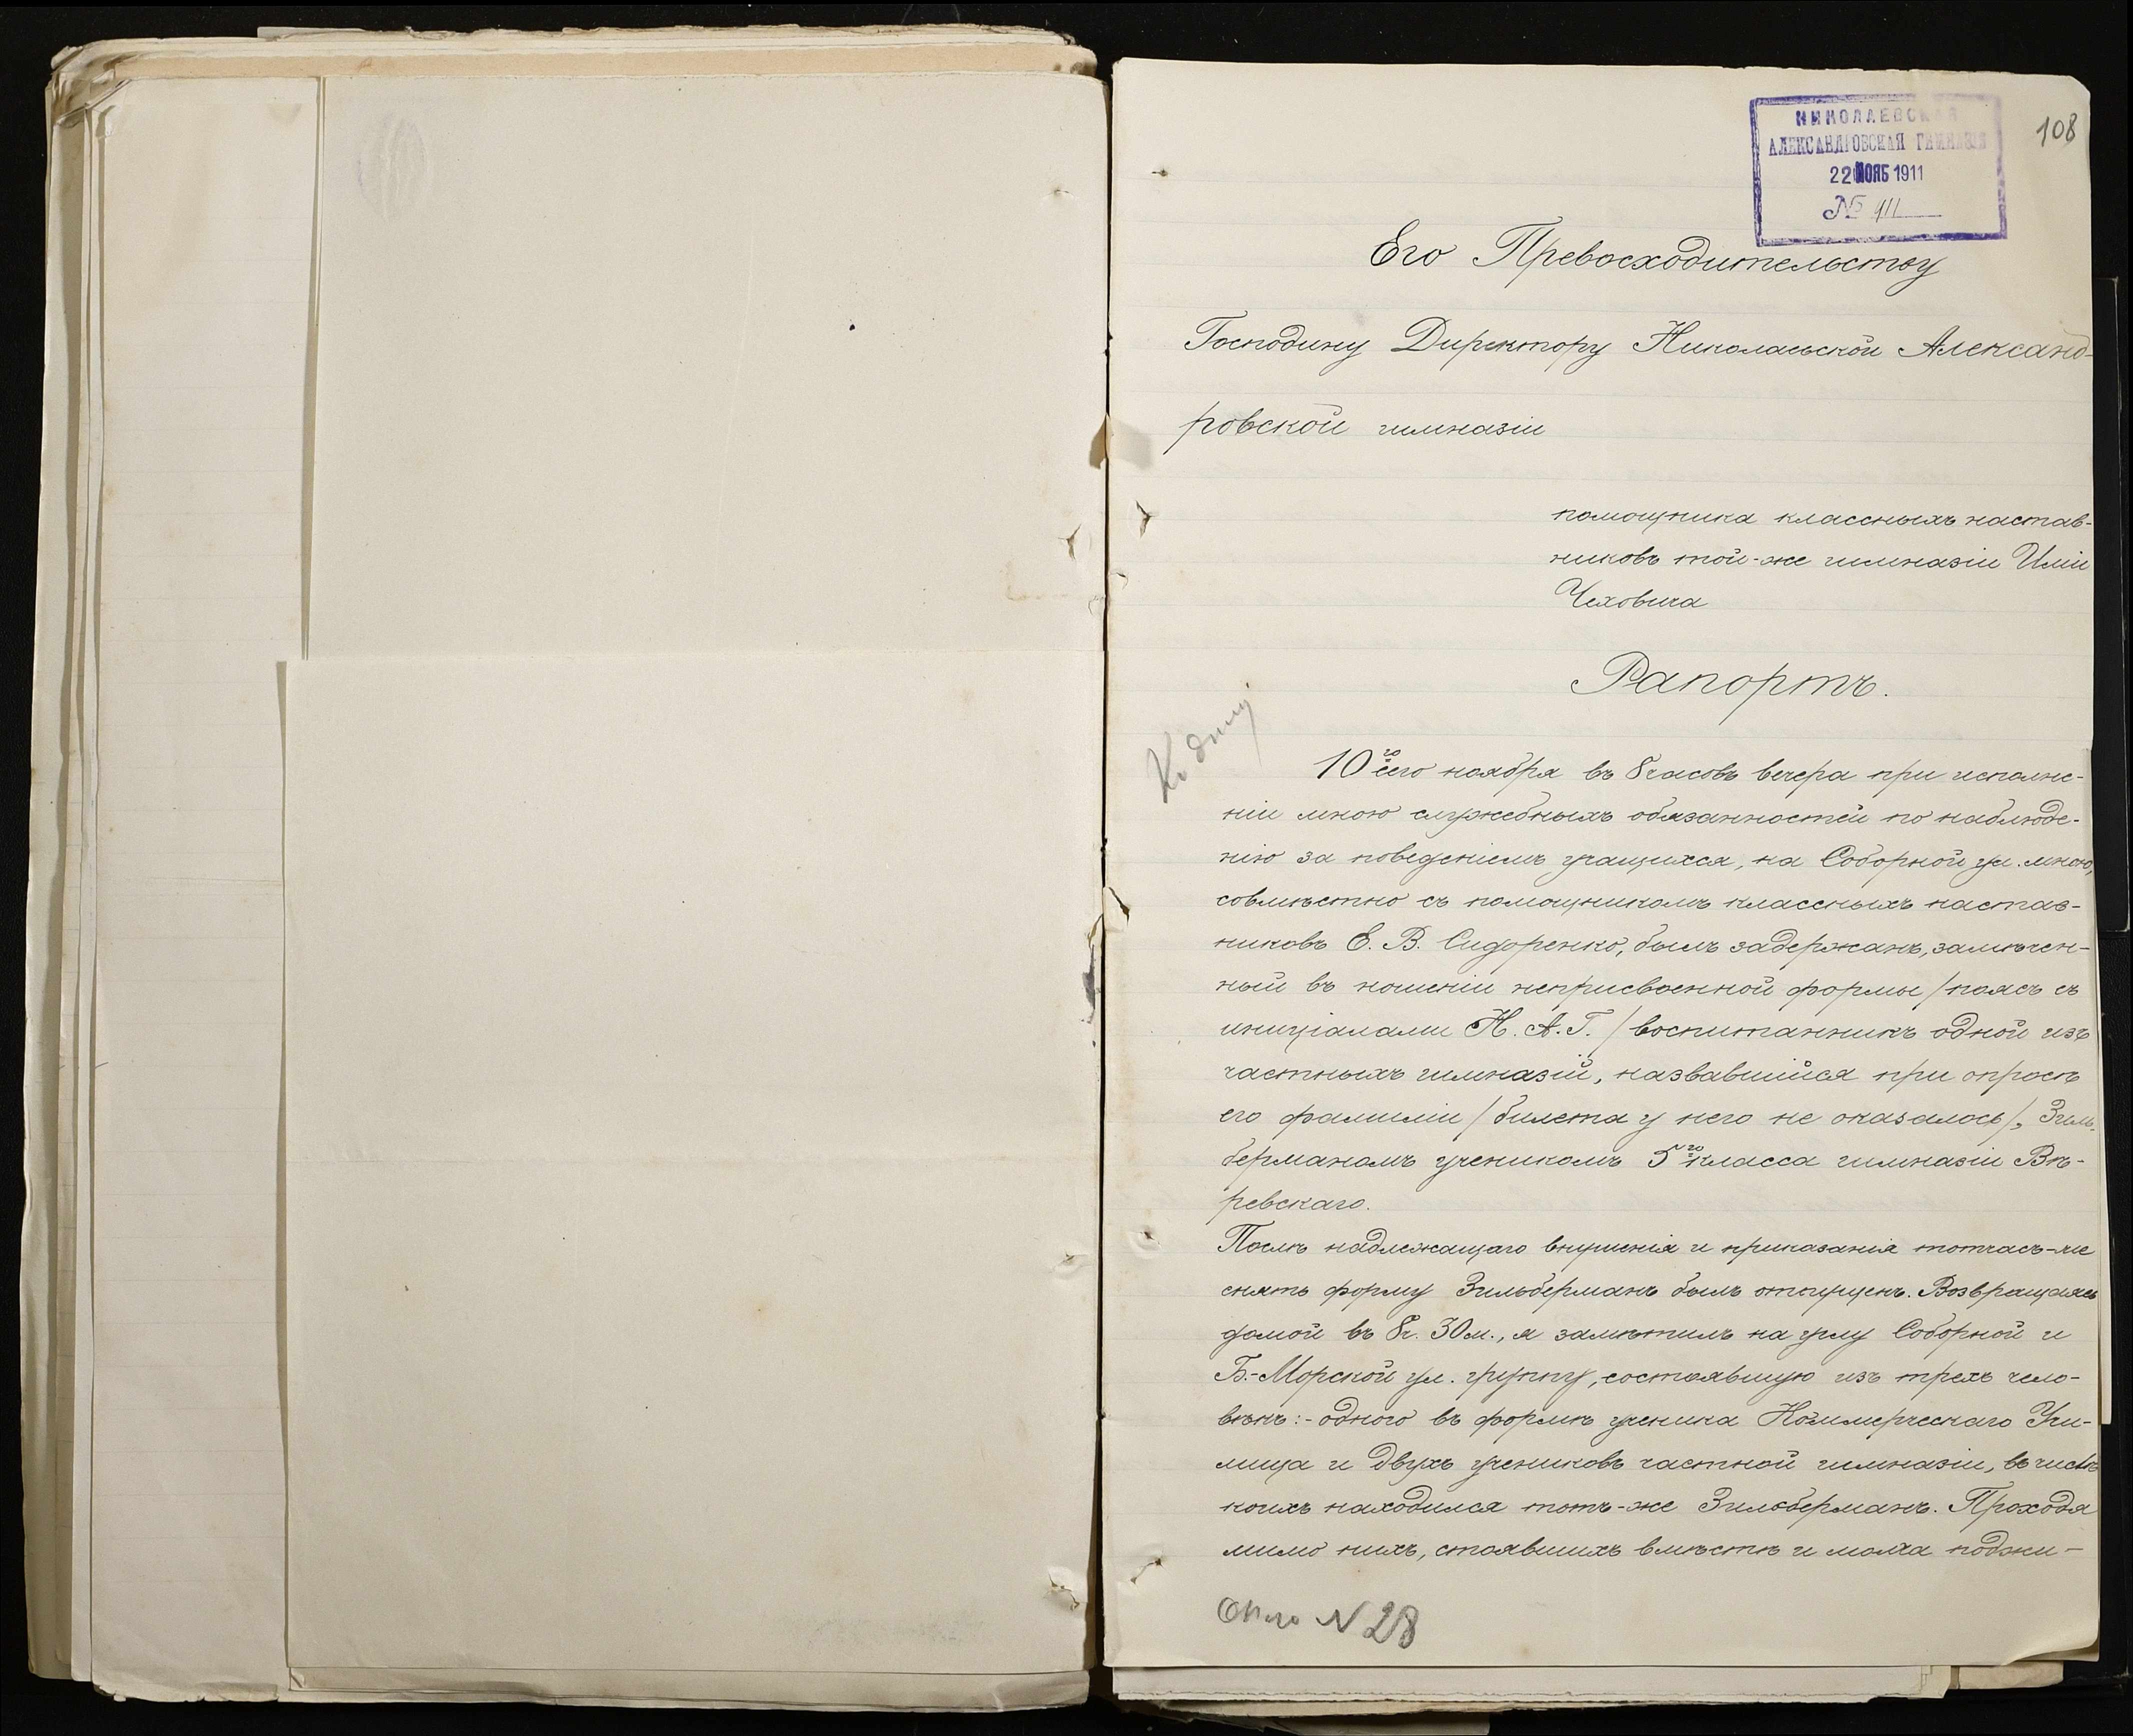 108
НИКОЛАЕВСКАЯ
АЛЕКСАНДРОВСКАЯ ГИМНАЗІЯ
22 НОЯБ 1911
№ 911
Его Превосходительству
Господину Директору Николаевской Александ-
ровской гимназіи
помощника классныхъ настав-
никовъ той-же гимназіи Иліи
Чеховича
Рапортъ.
Къ дѣлу
10го сего ноября въ 8 часовъ вечера при исполне-
ніи мною служебныхъ обязанностей по наблюде-
нію за поведеніемъ учащихся, на Соборной ул. мною,
совмѣстно съ помощникомъ классныхъ настав-
никовъ Е. В. Сидоренко, былъ задержанъ, замѣчен-
ный въ ношеніи неприсвоенной формы /поясъ съ
иниціалами Н. А. Г./ воспитанникъ одной изъ
частныхъ гимназій, назвавшійся при опросѣ
его фамиліи /билета у него не оказалось/, Зиль-
берманомъ ученикомъ 5го класса гимназіи Вѣ-
ревскаго.
Послѣ надлежащаго внушенія и приказанія тотчасъ-же
снять форму Зильберманъ былъ отпущенъ. Возвращаясь
домой въ 8 ч. 30 м., я замѣтилъ на углу Соборной и
Б.-Морской ул. группу, состоявшую изъ трехъ чело-
вѣкъ:- одного въ формѣ ученика Коммерческаго Учи-
лища и двухъ учениковъ частной гимназіи, въ числѣ
коихъ находился тотъ-же Зильберманъ. Проходя
мимо нихъ, стоявшихъ вмѣстѣ и молча поджи-
N 28